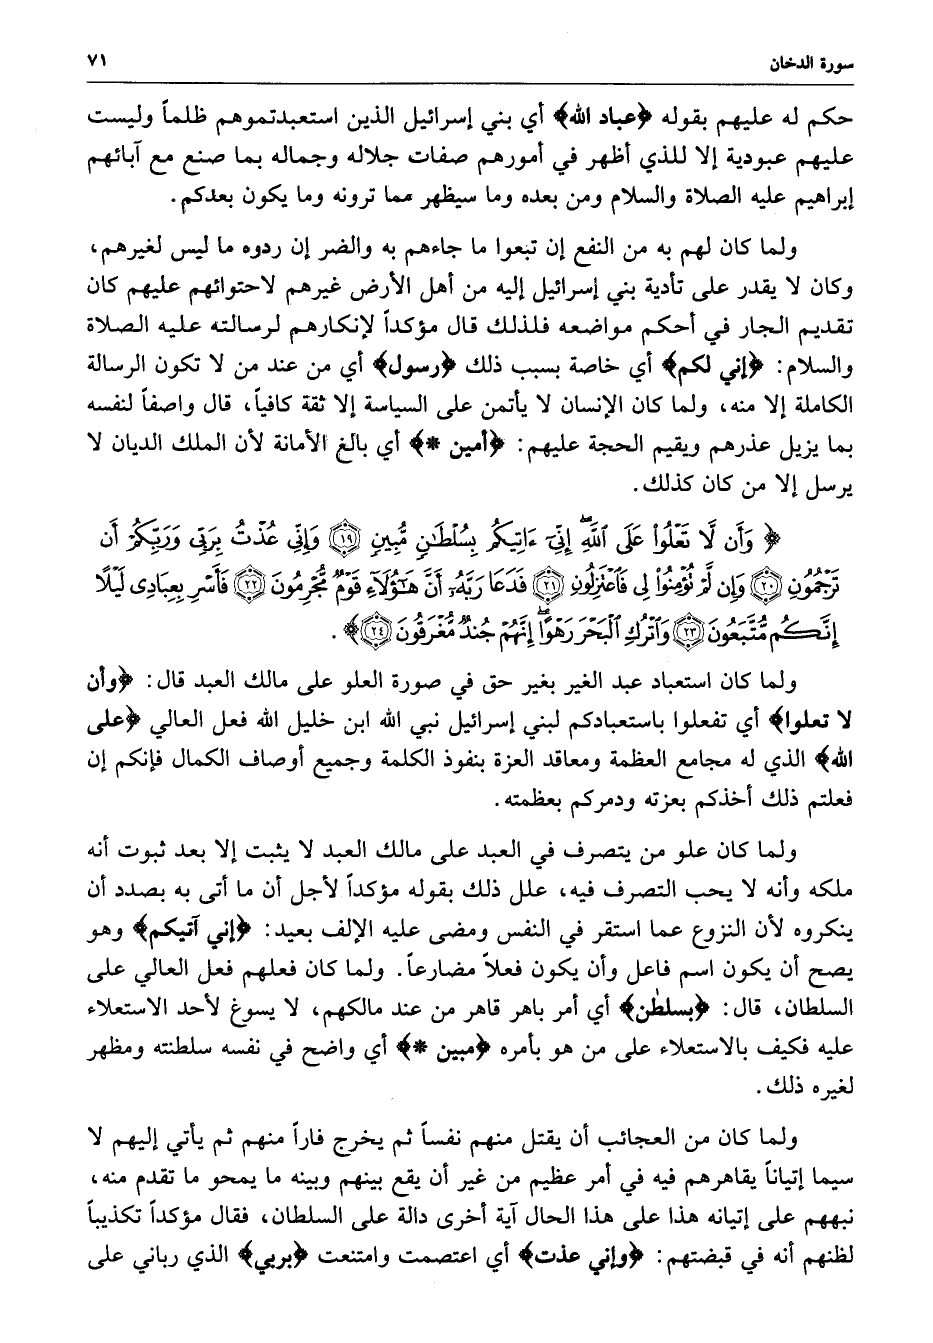 سورة الدخان ٧١
حكم له عليهم بقوله ﴿عباد الله﴾ أي بني إسرائيل الذين استعبدتموهم ظلماً وليست
عليهم عبودية إلا للذي أظهر في أمورهم صفات جلاله وجماله بما صنع مع آبائهم
إبراهيم عليه الصلاة والسلام ومن بعده وما سيظهر مما ترونه وما يكون بعدكم.
ولما كان لهم به من النفع إن تبعوا ما جاءهم به والضر إن ردوه ما ليس لغيرهم،
وكان لا يقدر على تأدية بني إسرائيل إليه من أهل الأرض غيرهم لاحتوائهم عليهم كان
تقديم الجار في أحكم مواضعه فلذلك قال مؤكداً لإنكارهم لرسالته عليه الصلاة
والسلام: ﴿إني لكم﴾ أي خاصة بسبب ذلك ﴿رسول﴾ أي من عند من لا تكون الرسالة
الكاملة إلا منه، ولما كان الإنسان لا يأتمن على السياسة إلا ثقة كافياً، قال واصفاً لنفسه
بما يزيل عذرهم ويقيم الحجة عليهم: ﴿أمين *﴾ أي بالغ الأمانة لأن الملك الديان لا
يرسل إلا من كان كذلك.
﴿ وَأَن لَّا تَعْلُوا۟ عَلَى ٱللَّهِ ۖ إِنِّىٓ ءَاتِيكُم بِسُلْطَـٰنٍ مُّبِينٍ ١٩ وَإِنِّى عُذْتُ بِرَبِّى وَرَبِّكُمْ أَن
تَرْجُمُونِ ٢٠ وَإِن لَّمْ تُؤْمِنُوا۟ لِى فَٱعْتَزِلُونِ ٢١ فَدَعَا رَبَّهُۥٓ أَنَّ هَـٰٓؤُلَآءِ قَوْمٌ مُّجْرِمُونَ ٢٢ فَأَسْرِ بِعِبَادِى لَيْلًا
إِنَّكُم مُّتَّبَعُونَ ٢٣ وَٱتْرُكِ ٱلْبَحْرَ رَهْوًا ۖ إِنَّهُمْ جُندٌ مُّغْرَقُونَ ٢٤﴾.
ولما كان استعباد عبد الغير بغير حق في صورة العلو على مالك العبد قال: ﴿وأن
لا تعلوا﴾ أي تفعلوا باستعبادكم لبني إسرائيل نبي الله ابن خليل الله فعل العالي ﴿على
الله﴾ الذي له مجامع العظمة ومعاقد العزة بنفوذ الكلمة وجميع أوصاف الكمال فإنكم إن
فعلتم ذلك أخذكم بعزته ودمركم بعظمته.
ولما كان علو من يتصرف في العبد على مالك العبد لا يثبت إلا بعد ثبوت أنه
ملكه وأنه لا يحب التصرف فيه، علل ذلك بقوله مؤكداً لأجل أن ما أتى به بصدد أن
ينكروه لأن النزوع عما استقر في النفس ومضى عليه الإلف بعيد: ﴿إني آتيكم﴾ وهو
يصح أن يكون اسم فاعل وأن يكون فعلاً مضارعاً. ولما كان فعلهم فعل العالي على
السلطان، قال: ﴿بسلطٰن﴾ أي أمر باهر قاهر من عند مالكهم، لا يسوغ لأحد الاستعلاء
عليه فكيف بالاستعلاء على من هو بأمره ﴿مبين *﴾ أي واضح في نفسه سلطنته ومظهر
لغيره ذلك.
ولما كان من العجائب أن يقتل منهم نفساً ثم يخرج فاراً منهم ثم يأتي إليهم لا
سيما إتياناً يقاهرهم فيه في أمر عظيم من غير أن يقع بينهم وبينه ما يمحو ما تقدم منه،
نبههم على إتيانه هذا على هذا الحال آية أخرى دالة على السلطان، فقال مؤكداً تكذيباً
لظنهم أنه في قبضتهم: ﴿وإني عذت﴾ أي اعتصمت وامتنعت ﴿بربي﴾ الذي رباني على